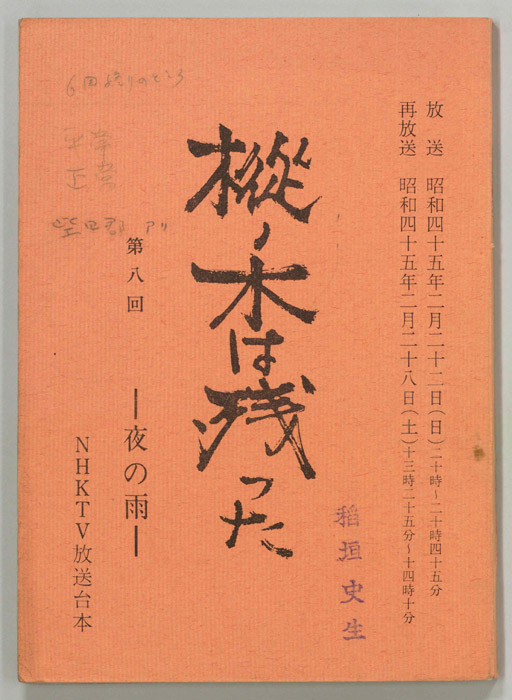 放送 昭和四十五年二月二十二日(日)二十時~二十時四十五分
再放送 昭和四十五年二月二十八日(土)十三時二十五分~十四時十分
樅ノ木は残った
稲垣史生
第八回 ―夜の雨―
NHKTV放送台本